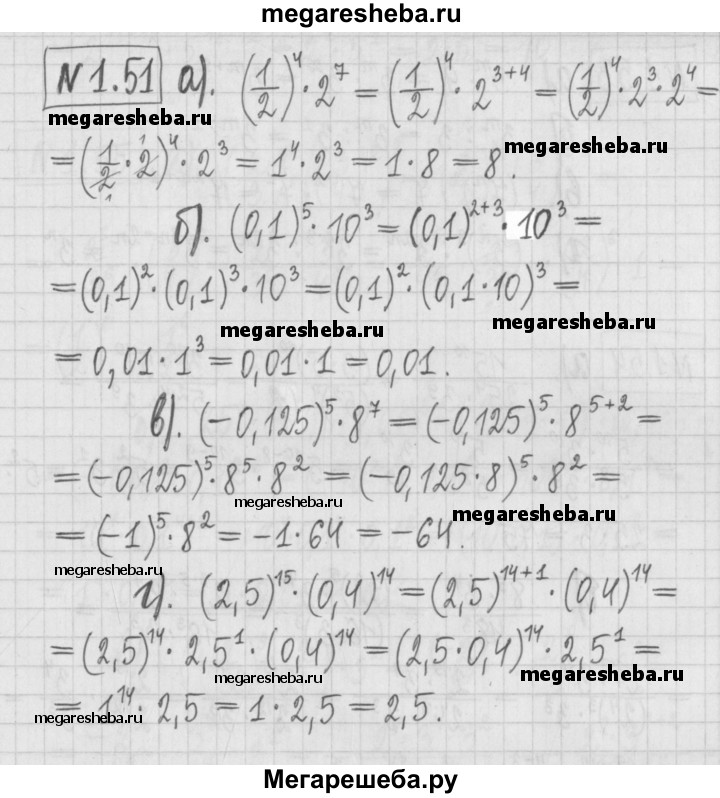 megaresheba.ru
№ 1.51 а). (1/2)⁴ · 2⁷ = (1/2)⁴ · 2³⁺⁴ = (1/2)⁴ · 2³ · 2⁴ =
megaresheba.ru
megaresheba.ru
= (1/2 · 2)⁴ · 2³ = 1⁴ · 2³ = 1 · 8 = 8.
б). (0,1)⁵ · 10³ = (0,1)²⁺³ · 10³ =
= (0,1)² · (0,1)³ · 10³ = (0,1)² · (0,1 · 10)³ =
megaresheba.ru
megaresheba.ru
= 0,01 · 1³ = 0,01 · 1 = 0,01.
в). (−0,125)⁵ · 8⁷ = (−0,125)⁵ · 8⁵⁺² =
= (−0,125)⁵ · 8⁵ · 8² = (−0,125 · 8)⁵ · 8² =
megaresheba.ru
megaresheba.ru
= (−1)⁵ · 8² = −1 · 64 = −64.
megaresheba.ru
г). (2,5)¹⁵ · (0,4)¹⁴ = (2,5)¹⁴⁺¹ · (0,4)¹⁴ =
= (2,5)¹⁴ · 2,5¹ · (0,4)¹⁴ = (2,5 · 0,4)¹⁴ · 2,5¹ =
megaresheba.ru
megaresheba.ru
= 1¹⁴ · 2,5 = 1 · 2,5 = 2,5.
megaresheba.ru
Мегарешеба.ру